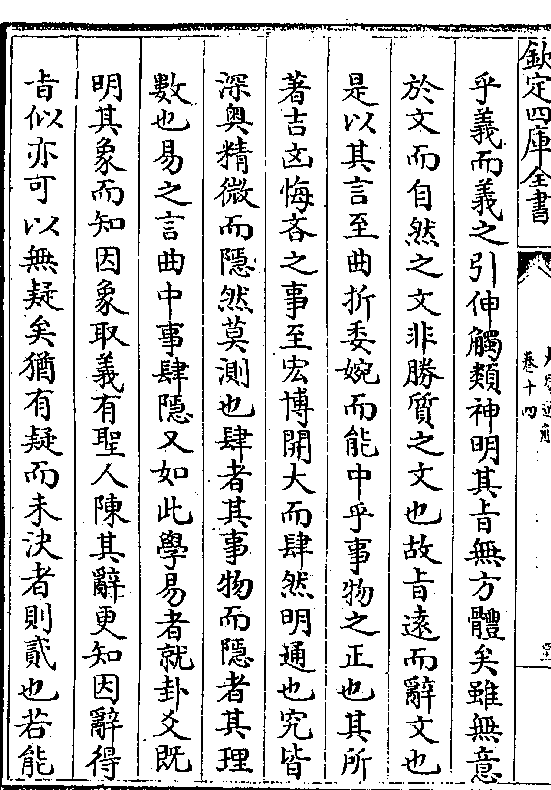 欽定四庫全書
卷十四
乎義而義之引伸觸類神明其旨無方體矣雖無意
於文而自然之文非勝質之文也故旨遠而辭文也
是以其言至曲折委婉而能中乎事物之正也其所
著吉凶悔吝之事至宏博開大而肆然明通也究皆
深奧精微而隱然莫測也肆者其事物而隱者其理
數也易之言曲中事肆隱又如此學易者就卦爻既
明其象而知因象取義有聖人陳其辭更知因辭得
旨似亦可以無疑矣猶有疑而未決者則貳也若能